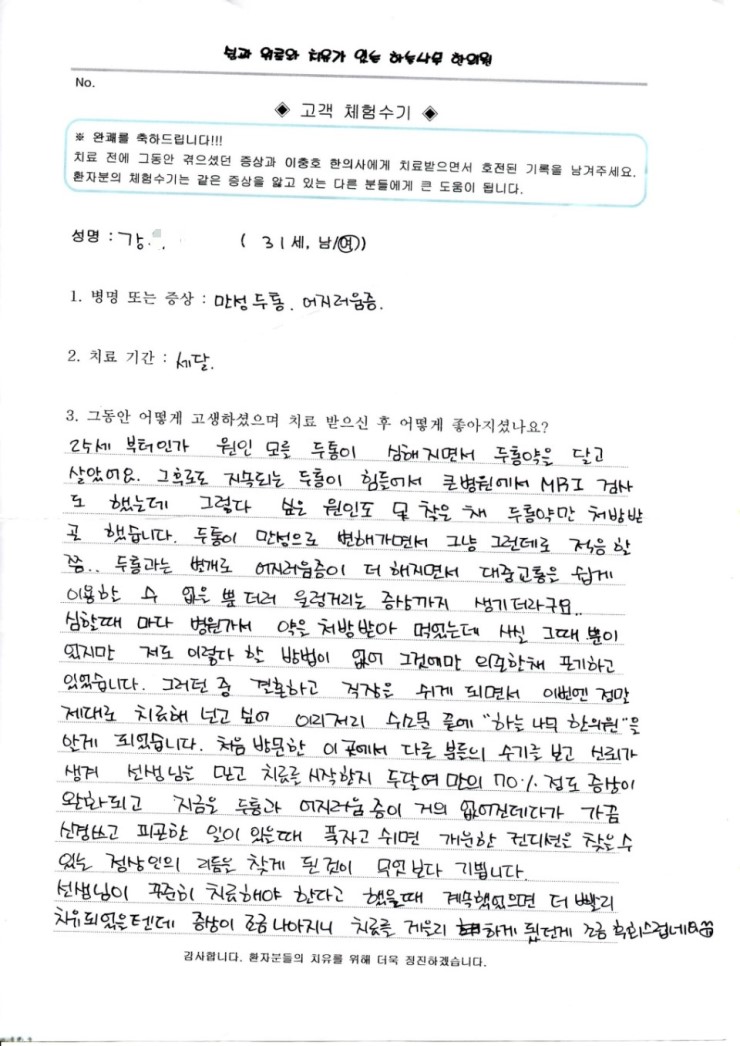 No.
◈ 고객 체험수기 ◈
※ 완쾌를 축하드립니다!!!
치료 전에 그동안 겪으셨던 증상과 이충호 한의사에게 치료받으면서 호전된 기록을 남겨주세요.
환자분의 체험수기는 같은 증상을 앓고 있는 다른 분들에게 큰 도움이 됩니다.
성명 : 강. ( 31세, 남/여)
1. 병명 또는 증상 : 만성두통. 어지러움증.
2. 치료 기간 : 세달.
3. 그동안 어떻게 고생하셨으며 치료 받으신 후 어떻게 좋아지셨나요?
25세 부터인가 원인 모를 두통이 심해지면서 두통약을 달고
살았어요. 그후로도 지속되는 두통이 힘들어서 큰병원에서 MRI 검사
도 했는데 그렇다 싶은 원인도 못 찾은 채 두통약만 처방받
곤 했습니다. 두통이 만성으로 변해가면서 그냥 그런데로 적응 할
쯤.. 두통과는 별개로 어지러움증이 더 해지면서 대중교통은 쉽게
이용할 수 없을 뿐 더러 울렁거리는 증상까지 생기더라구요..
심할때 마다 병원가서 약을 처방받아 먹었는데 사실 그때 뿐이
었지만 저도 이렇다 할 방법이 없어 그것에만 의존한채 포기하고
있었습니다. 그러던 중 결혼하고 직장을 쉬게 되면서 이번엔 정말
제대로 치료해 보고 싶어 이리저리 수소문 끝에 "하늘 나무 한의원"을
알게 되었습니다. 처음 방문한 이 곳에서 다른 분들의 수기를 보고 신뢰가
생겨 선생님을 믿고 치료를 시작한지 두달여 만의 70% 정도 증상이
완화되고 지금은 두통과 어지러움증이 거의 없어진데다가 가끔
신경쓰고 피곤한 일이 있을때 푹자고 쉬면 개운한 컨디션을 찾을수
있는 정상인의 리듬을 찾게 된것이 무엇보다 기쁩니다.
선생님이 꾸준히 치료해야 한다고 했을때 계속했었으면 더 빨리
치유되었을텐데 증상이 조금 나아지니 치료를 게을리 하게 됐던게 조금 후회스럽네요
감사합니다. 환자분들의 치유를 위해 더욱 정진하겠습니다.